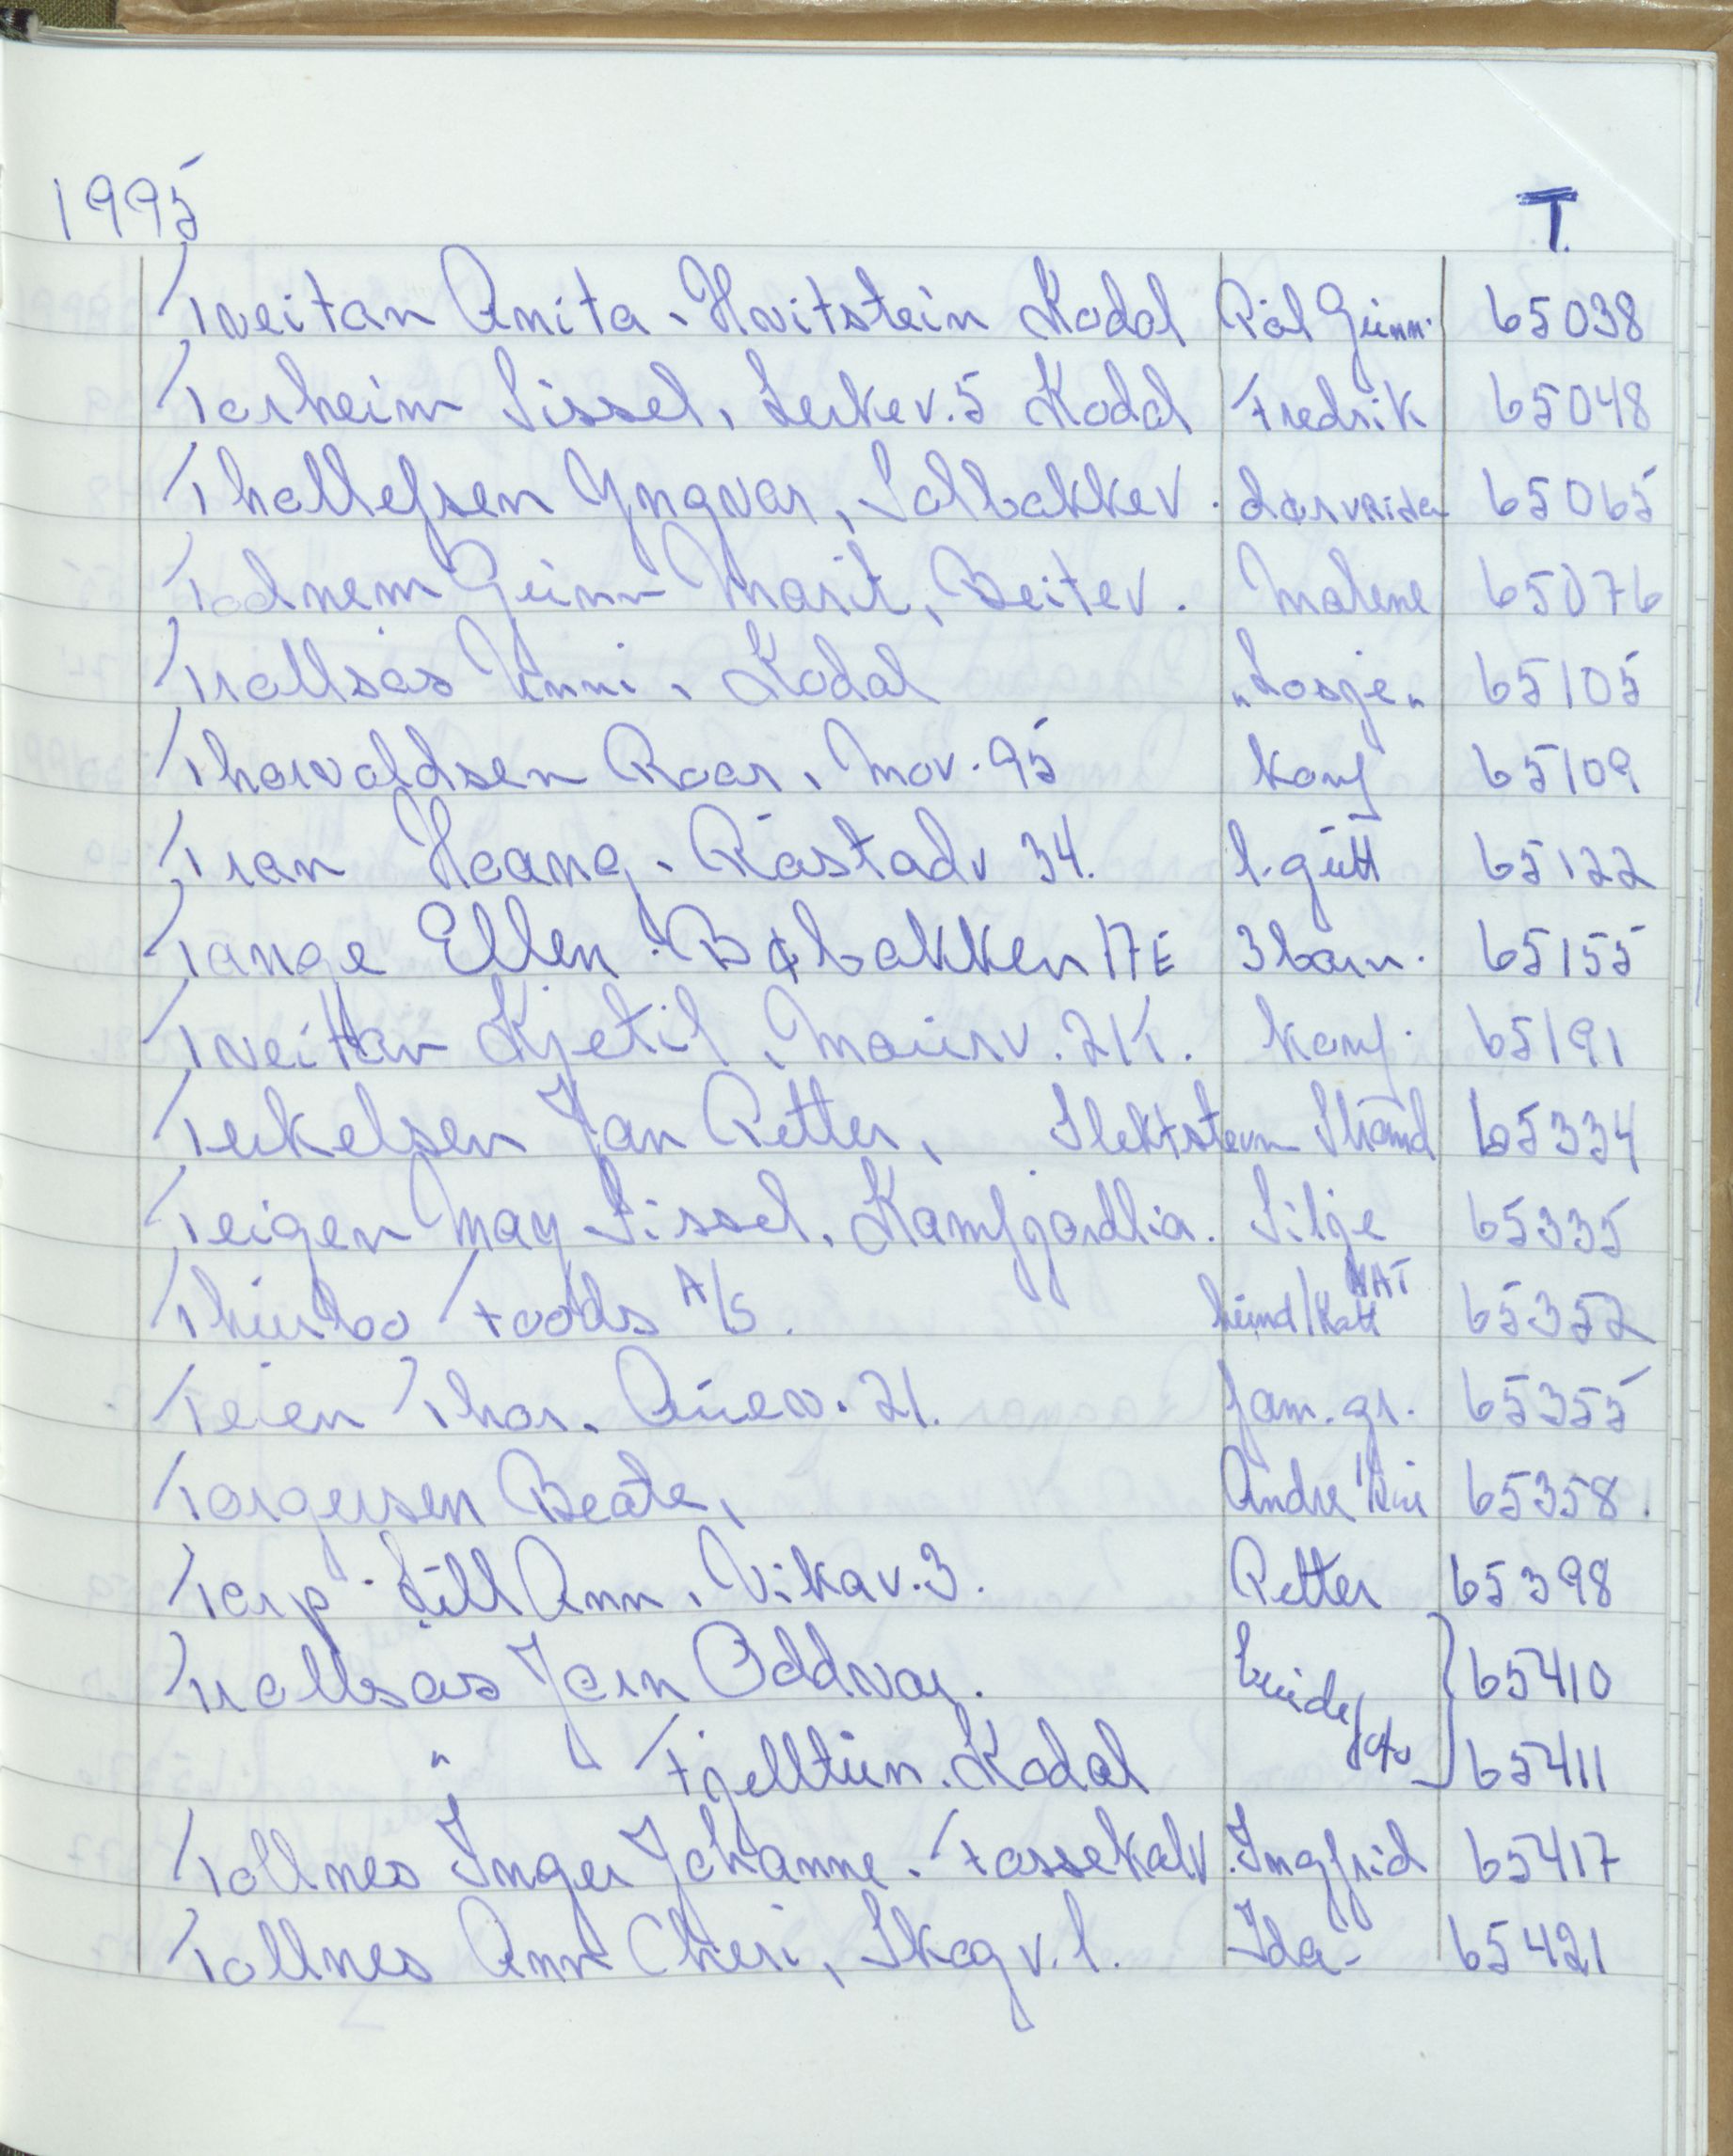 1995 T.
Tveitan Anita. Hvitstein Kodal Pål Gunn. 65038
Torheim Sissel, Lerkev. 5 Kodal Fredrik 65048
Thollefsen Yngvar, Solbakkev. 65065
Todnem Gunn Marit, Beitev. Malene 65076
Trollsås Unni, Kodal "Losje" 65105
Thorvaldsen Roar, nov. 95 konf 65109
Tran Hoang. Råstadv 34. l. gutt 65122
Tange Ellen. Bøbakken 17E 3 barn. 65155
Tveittan Kjetil, Maurv. 2K. konf. 65191
Terkelsen Jan Petter, Slektstevn Strand 65334
Teigen May Sissel. Kamfjordlia. Silje 65335
Thurbo Foods A/S. hund/Katt NAT 65352
Teien Thor. 21. fam. gr. 65355
Torgersen Beate, Andre 65358.
Tarp Lill Ann, Vikav. 3. Petter 65398
Trollsås Jørn Oddvar. 65410
" " Fjelltun. Kodal 65411
Tollnes Inger Johanne. Fossekalv. Ingfrid 65417
Tollnes Ann Cheri, Skogv. 1. Ida- 65421